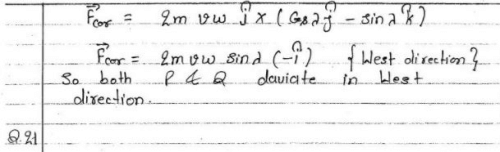 F⃗cor = 2m vω ĵ × (Cosλĵ - sinλk̂)
F⃗cor = 2m vω sinλ (-î) {West direction}
So both P & Q daviate in West
direction.
Q.21